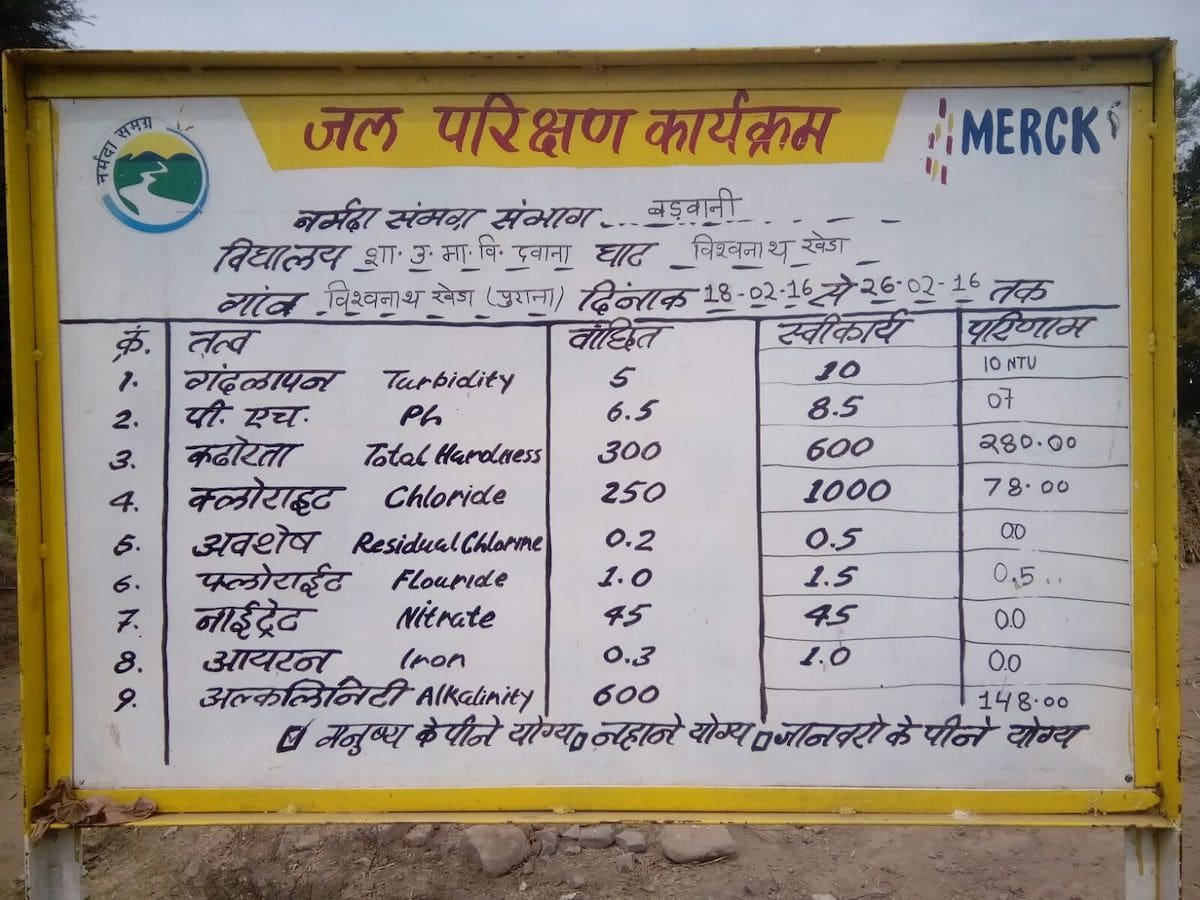 नर्मदा समग्र
जल परिक्षण कार्यक्रम
MERCK
नर्मदा संमग्र संभाग... बड़वानी - - -
विद्यालय शा. उ. मा. वि. दवाना घाट विश्वनाथ खेडा
गांव विश्वनाथ खेडा (पुराना) दिंनाक 18-02-16 से 26-02-16 तक
क्रं. तत्व वांछित स्वीकार्य परिणाम
1. गंदलापन Turbidity 5 10 10 NTU
2. पी. एच. Ph 6.5 8.5 07
3. कठोरता Total Hardness 300 600 280.00
4. क्लोराइट Chloride 250 1000 78.00
5. अवशेष Residual Chlorine 0.2 0.5 0.0
6. फ्लोराईट Flouride 1.0 1.5 0.5..
7. नाईट्रेट Nitrate 45 45 0.0
8. आयरन Iron 0.3 1.0 0.0
9. अल्कलिनिटी Alkalinity 600 148.00
☑ मनुष्य के पीने योग्य ☐ नहाने योग्य ☐ जानवरो के पीने योग्य